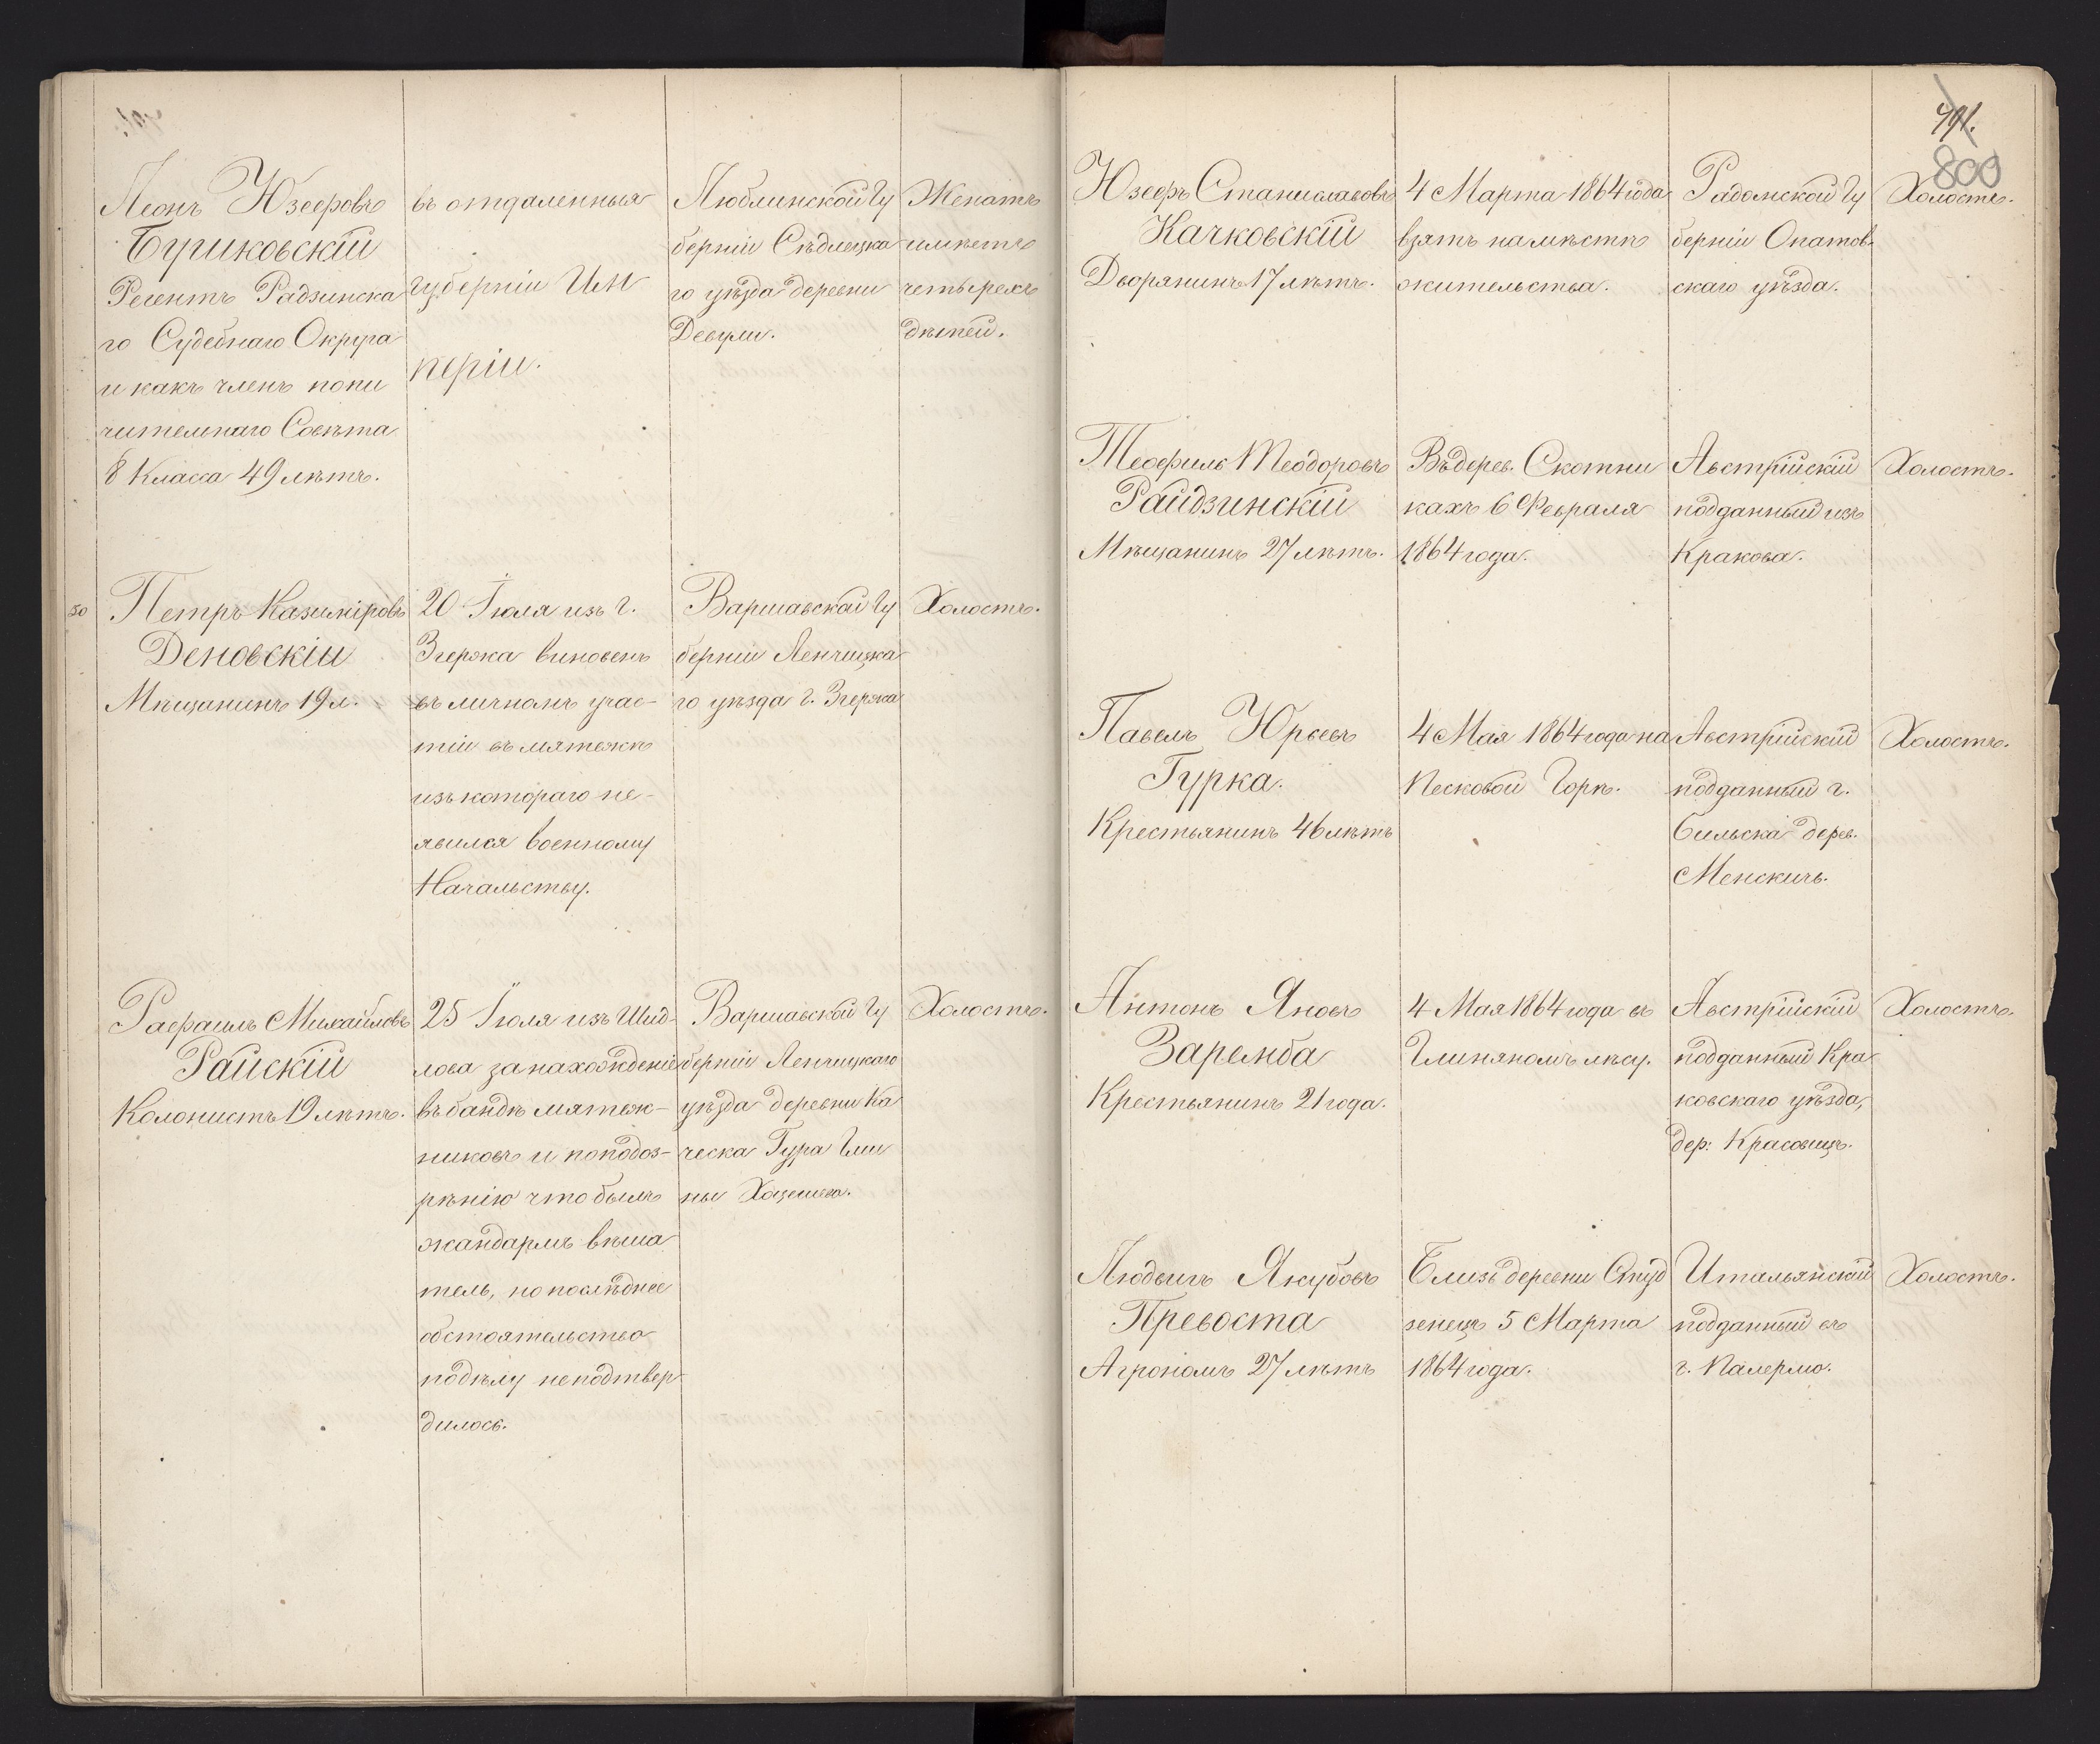 Леонъ Юзефовъ
Бушковскій
Регентъ Радзинска
го Судебнаго Округа
и какъ членъ попи
чительнаго Совѣта
8 Класса 49 лѣтъ.
въ отдаленныя
губерніи Им
періи.
Люблинской Гу
берніи Сѣдлецка
го уѣзда деревни
Девули.
Женатъ
имѣетъ
четырехъ
дѣтей.
50
Петръ Казиміровъ
Деновскій
Мѣщанинъ 19 л.
20 Іюля изъ г.
Згержа виновенъ
въ личномъ учас-
тіи въ мятежѣ
изъ котораго не-
явился военному
Начальству.
Варшавской Гу
берніи Ленчицка
го уѣзда г. Згержа
Холостъ.
Рафаилъ Михайловъ
Райскій
Колонистъ 19 лѣтъ.
25 Іюля изъ Шид-
лова за нахожденіе
въ бандѣ мятеж-
никовъ и по подоз-
рѣнію что былъ
жандармъ вѣша
тель, но послѣднее
обстоятельство
по дѣлу не подтвер
дилось.
Варшавской Гу
берніи Ленчицкаго
уѣзда деревни Ка
ческа Гура Гми
ны
Холостъ.
791.
800
Юзефъ Станиславовъ
Качковскій
Дворянинъ 17 лѣтъ.
4 Марта 1864 года
взятъ на мѣстѣ
жительства.
Радомской Гу
берніи Опатов-
скаго уѣзда.
Холостъ.
Теофиль Теодоровъ
Райдзинскій
Мѣщанинъ 27 лѣтъ.
Въ дерев. Скотни
кахъ 6 Февраля
1864 года.
Австрійскій
подданный изъ
Кракова.
Холостъ.
Павелъ Юрьевъ
Гурка.
Крестьянинъ 46 лѣтъ
4 Мая 1864 года на
Песковой Горѣ.
Австрійскій
подданный г.
Бильска дерев.
Менскичь.
Холостъ.
Антонъ Яновъ
Заремба
Крестьянинъ 21 года.
4 Мая 1864 года въ
Глиняномъ лѣсу.
Австрійскій
подданный Кра
ковскаго уѣзда,
дер. Красовицъ.
Холостъ.
Людвигъ Якубовъ
Превоста
Агрономъ 27 лѣтъ
Близь деревни Студ
зенецъ 5 Марта
1864 года.
Итальянскій
подданный въ
г. Палермо.
Холостъ.